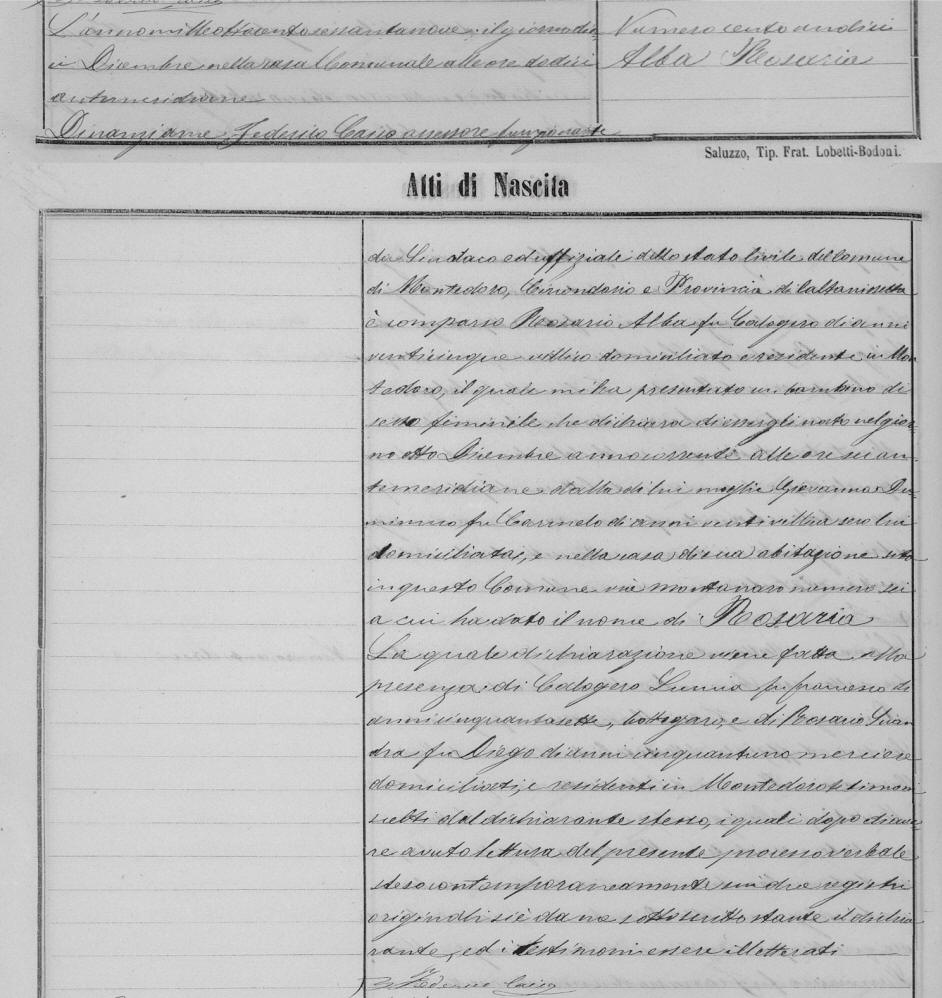 L'anno mille ottocento sessantanove, il giorno die-
ci Dicembre nella casa Comunale alle ore dodici
antimeridiane
Dinanzi a me, Federico Caico assessore funzionante
Numero cento undici
Alba Rosaria
Saluzzo, Tip. Frat. Lobetti-Bodoni.
Atti di Nascita
da Sindaco ed uffiziale dello stato Civile del Comune
di Montedoro, Circondario e Provincia di Caltanissetta
è comparso Rosario Alba fu Calogero di anni
venticinque domiciliato e residente in Mon
tedoro, il quale mi ha presentato un bambino di
sesso feminile che dichiara di essergli nato nel gior-
no otto Dicembre anno corrente alle ore sei an-
timeridiane dalla di lui moglie Giovanna Du-
minuco fu Carmelo di anni venti seco lui
domiciliata, e nella casa di sua abitazione sita
in questo Comune via montanaro numero sei
a cui ha dato il nome di Rosaria
La quale dichiarazione viene fatta alla
presenza di Calogero Lumia fu francesco di
anni cinquantasette, bottegaro, e di Rosario
fu Diego di anni cinquantuno merciere
domiciliati, e residenti in Montedoro testimoni
scelti dal dichiarante stesso, i quali dopo di ave-
re avuto lettura del presente processo verbale
steso contemporaneamente sui due registri
originali si è da me sottoscritto stante il dichia
rante, ed i testimoni essere illetterati
Federico Caico